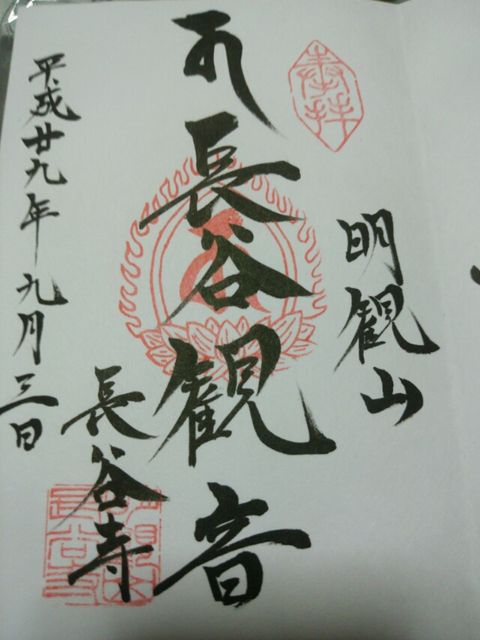 奉拝
明観山
長谷観音
長谷寺
平成廿九年九月三日